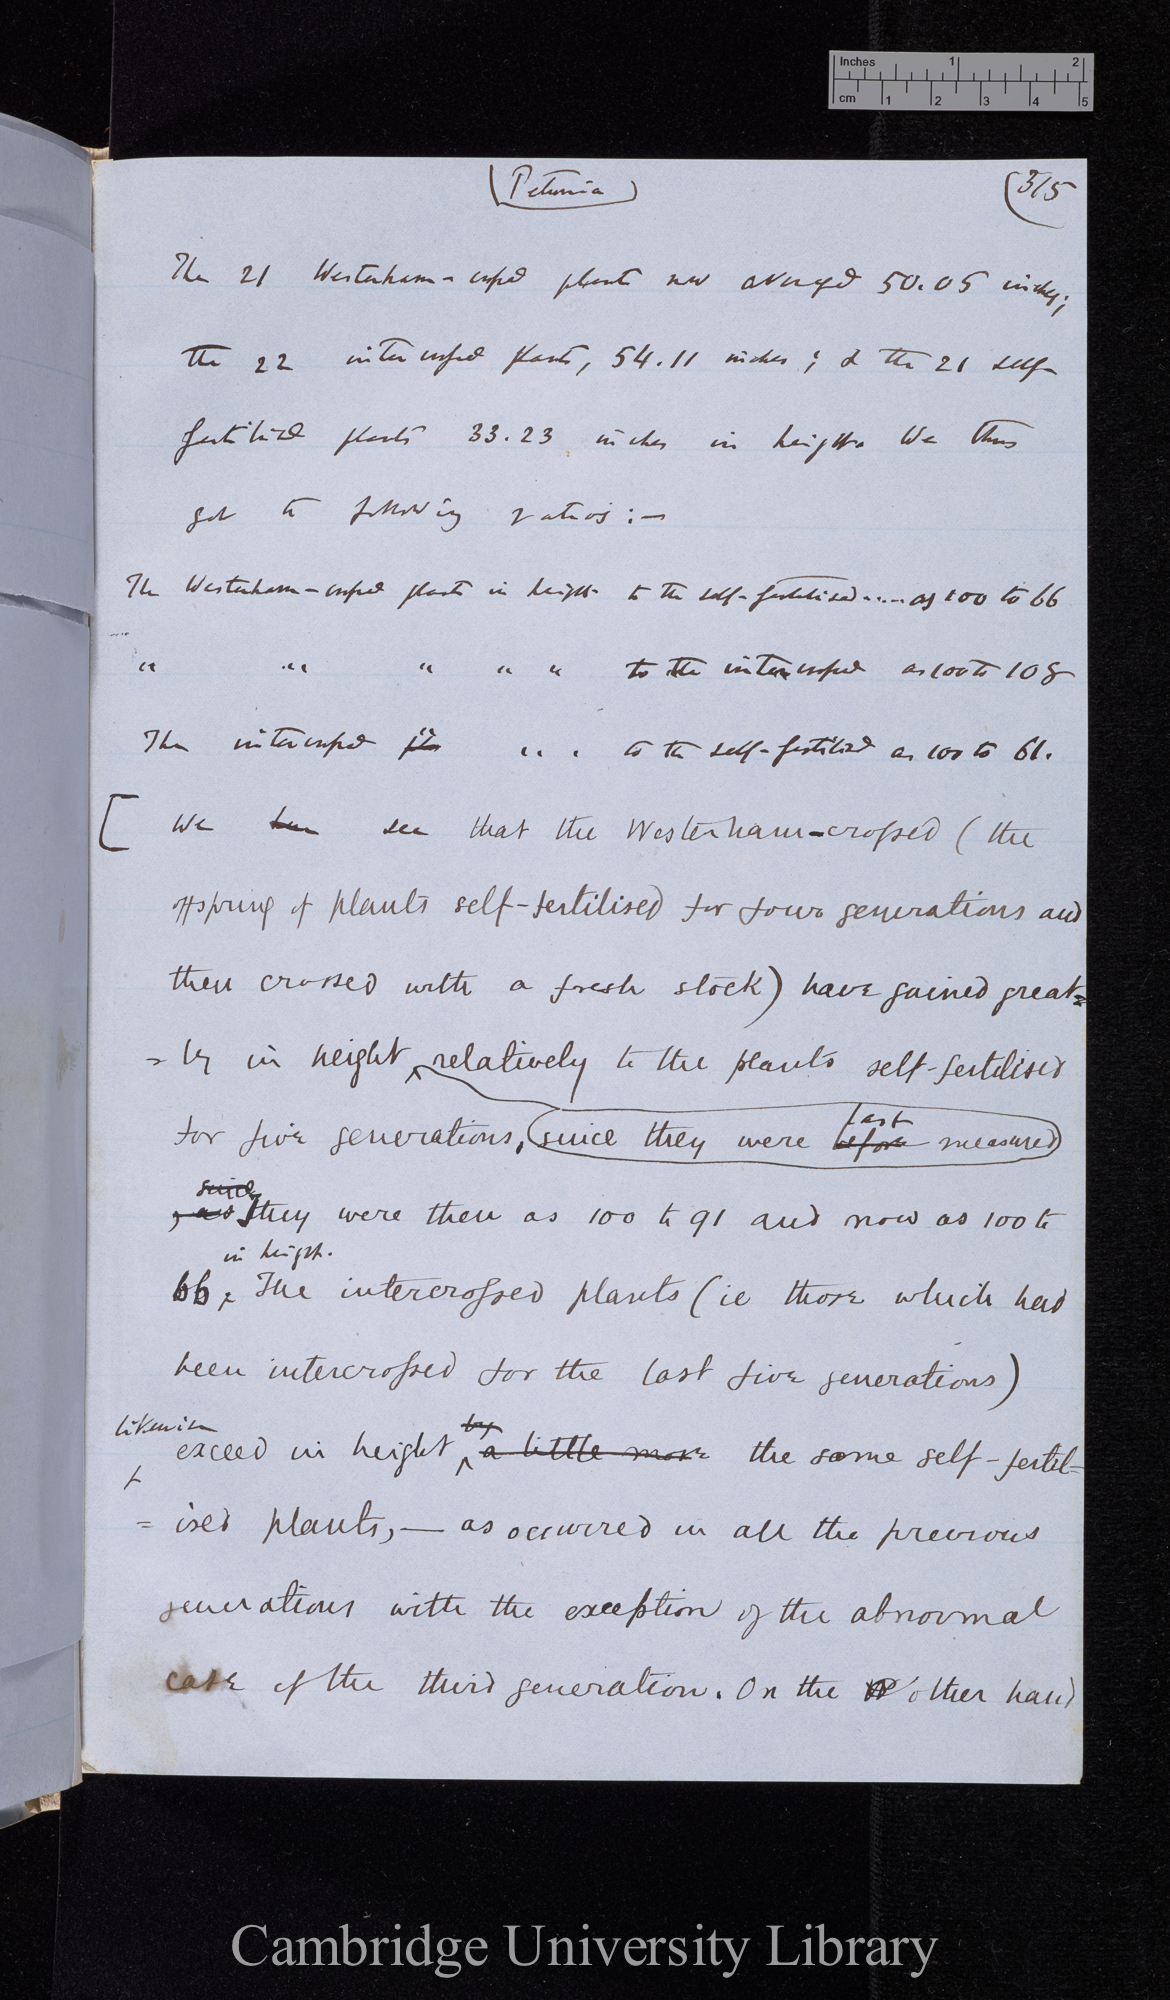 Inches 1 2
cm 1 2 3 4 5
(Petunia)
(315
The 21 Westerham-crossed plants now averaged 50.05 inches;
the 22 intercrossed plants, 54.11 inches; & the 21 self-
fertilised plants 33.23 inches in height. We thus
get the following ratios:—
The Westerham-crossed plants in height to the self-fertilised.....as 100 to 66
" " " " " to the intercrossed as 100 to 108
The intercrossed " " " to the self-fertilised as 100 to 61.
[ We here see that the Westerham-crossed (the
offspring of plants self-fertilised for four generations and
then crossed with a fresh stock) have gained great=
=ly in height, relatively to the plants self-fertilised
last
for five generations, (since they were before measured)
since
, as they were then as 100 to 91 and now as 100 to
in height.
66. The intercrossed plants (ie those which had
been intercrossed for the last five generations)
likewise by
exceed in height a little more the same self-fertil=
=ised plants,— as occurred in all the previous
generations with the exception of the abnormal
case of the third generation. On the other hand
Cambridge University Library